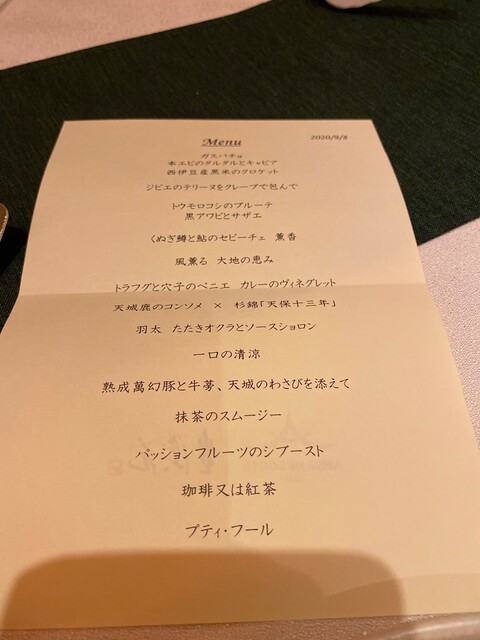 Menu
2020/9/8
ガスパチョ
本エビのタルタルとキャビア
西伊豆産黒米のクロケット
ジビエのテリーヌをクレープで包んで
トウモロコシのブルーテ
黒アワビとサザエ
くぬぎ鱒と鮎のセビーチェ 薫香
風薫る 大地の恵み
トラフグと穴子のベニエ カレーのヴィネグレット
天城鹿のコンソメ × 杉錦「天保十三年」
羽太 たたきオクラとソースショロン
一口の清涼
熟成萬幻豚と牛蒡、天城のわさびを添えて
抹茶のスムージー
パッションフルーツのシブースト
珈琲又は紅茶
プティ・フール